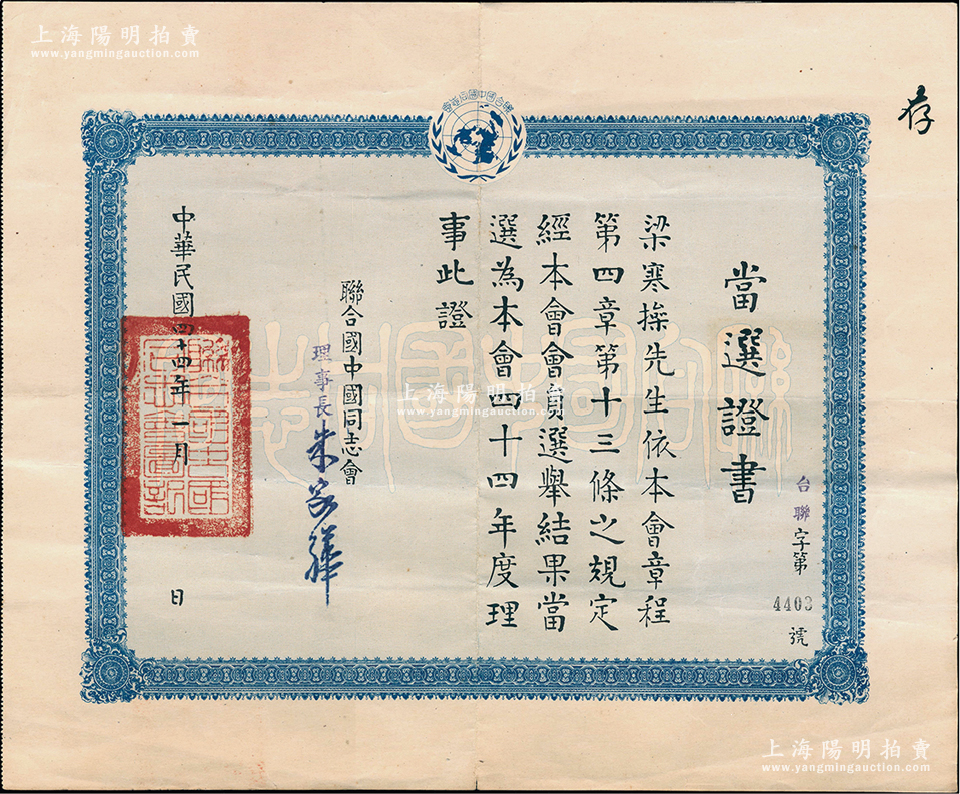 上海陽明拍賣
www.yangmingauction.com
存
聯合國中國同志會
當選證書
台聯字第4403號
梁寒操先生依本會章程
第四章第十三條之規定
經本會會員選舉結果當
選為本會四十四年度理
事此證
聯合國中國同志會
理事長朱家驊
中華民國四十四年一月 日
聯合國中國同志
上海陽明拍賣
www.yangmingauction.com
上海陽明拍賣
www.yangmingauction.com